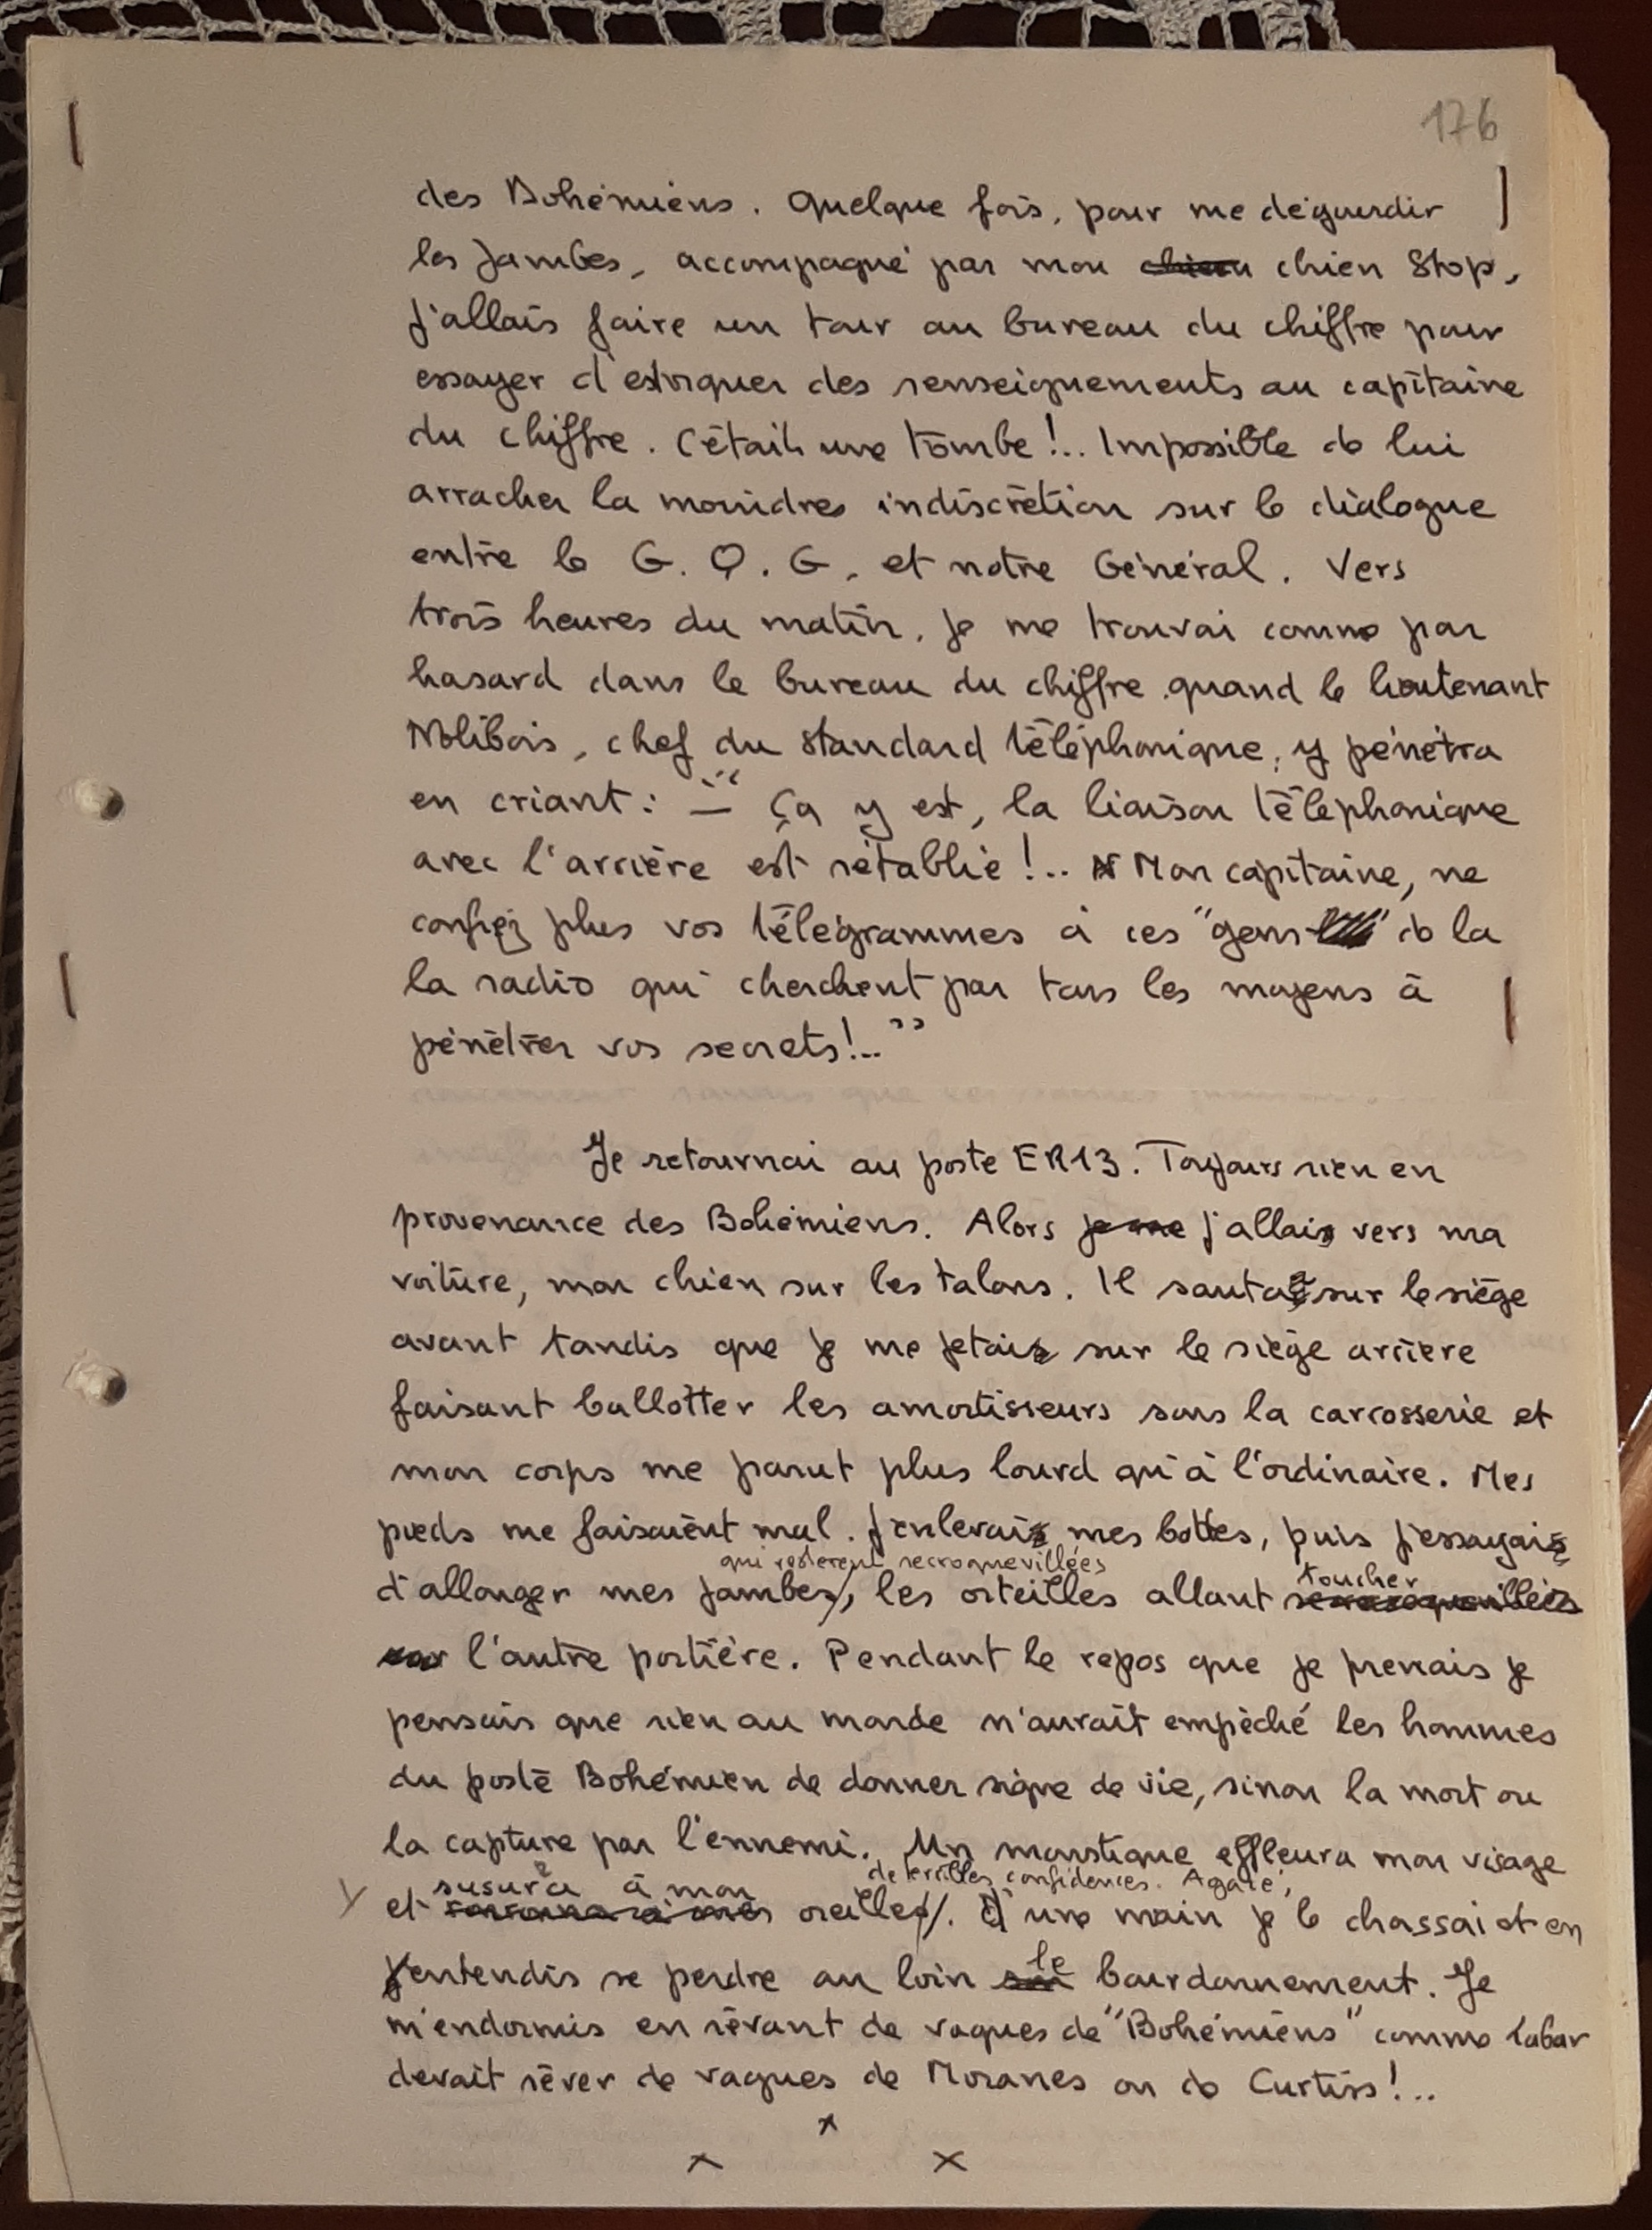 176
des Bohémiens. Quelque fois, pour me dégourdir
les jambes, accompagné par mon chien Stop,
j'allais faire un tour au bureau du chiffre pour
essayer d'estorquer des renseignements au capitaine
du chiffre. C'était une tombe!.. Impossible de lui
arracher la moindres indiscrétion sur le dialogue
entre le G.Q.G. et notre Général. Vers
trois heures du matin, je me trouvai comme par
hasard dans le bureau du chiffre quand le lieutenant
Molibois, chef du standard téléphonique, y pénétra
en criant: — " Ça y est, la liaison téléphonique
avec l'arrière est rétablie!.. Mon capitaine, ne
confiez plus vos télégrammes à ces "gens" de la
la radio qui cherchent par tous les moyens à
pénétrer vos secrets!.. "
Je retournai au poste ER13. Toujours rien en
provenance des Bohémiens. Alors je me j'allais vers ma
voiture, mon chien sur les talons. Il sauta sur le siège
avant tandis que je me jetais sur le siège arrière
faisant ballotter les amortisseurs sous la carrosserie et
mon corps me parut plus lourd qu'à l'ordinaire. Mes
pieds me faisaient mal. J'enlevais mes bottes, puis j'essayais
qui restèrent recroquevillées
d'allonger mes jambes, les orteilles allant toucher
l'autre portière. Pendant le repos que je prenais je
pensais que rien au monde n'aurait empêché les hommes
du poste Bohémien de donner signe de vie, sinon la mort ou
la capture par l'ennemi. Un moustique effleura mon visage
susura à mon de terribles confidences. Agacé,
et oreille. D'une main je le chassai et en
j'entendis se perdre au loin le bourdonnement. Je
m'endormis en rêvant de vagues de "Bohémiens" comme Labar
devait rêver de vagues de Moranes ou de Curtiss!..
x
x x